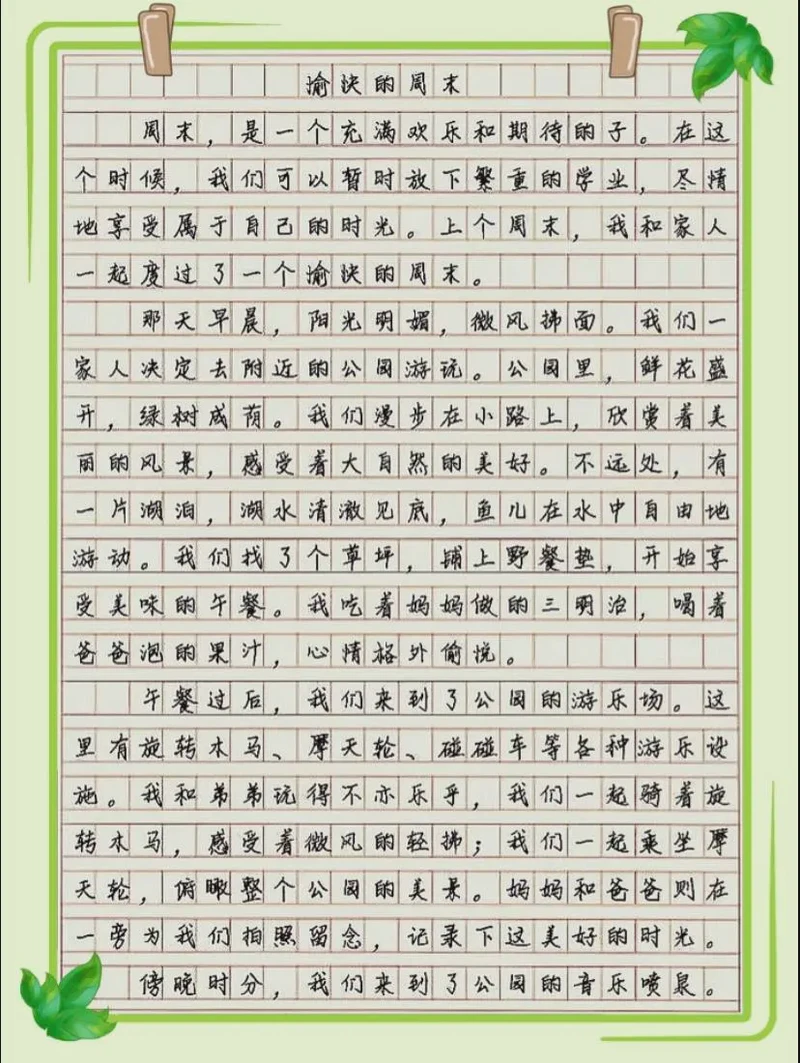 愉快的周末
周末，是一个充满欢乐和期待的子。在这
个时候，我们可以暂时放下繁重的学业，尽情
地享受属于自己的时光。上个周末，我和家人
一起度过了一个愉快的周末。
那天早晨，阳光明媚，微风拂面。我们一
家人决定去附近的公园游玩。公园里，鲜花盛
开，绿树成荫。我们漫步在小路上，欣赏着美
丽的风景，感受着大自然的美好。不远处，有
一片湖泊，湖水清澈见底，鱼儿在水中自由地
游动。我们找了个草坪，铺上野餐垫，开始享
受美味的午餐。我吃着妈妈做的三明治，喝着
爸爸泡的果汁，心情格外愉悦。
午餐过后，我们来到了公园的游乐场。这
里有旋转木马、摩天轮、碰碰车等各种游乐设
施。我和弟弟玩得不亦乐乎，我们一起骑着旋
转木马，感受着微风的轻拂；我们一起乘坐摩
天轮，俯瞰整个公园的美景。妈妈和爸爸则在
一旁为我们拍照留念，记录下这美好的时光。
傍晚时分，我们来到了公园的音乐喷泉。